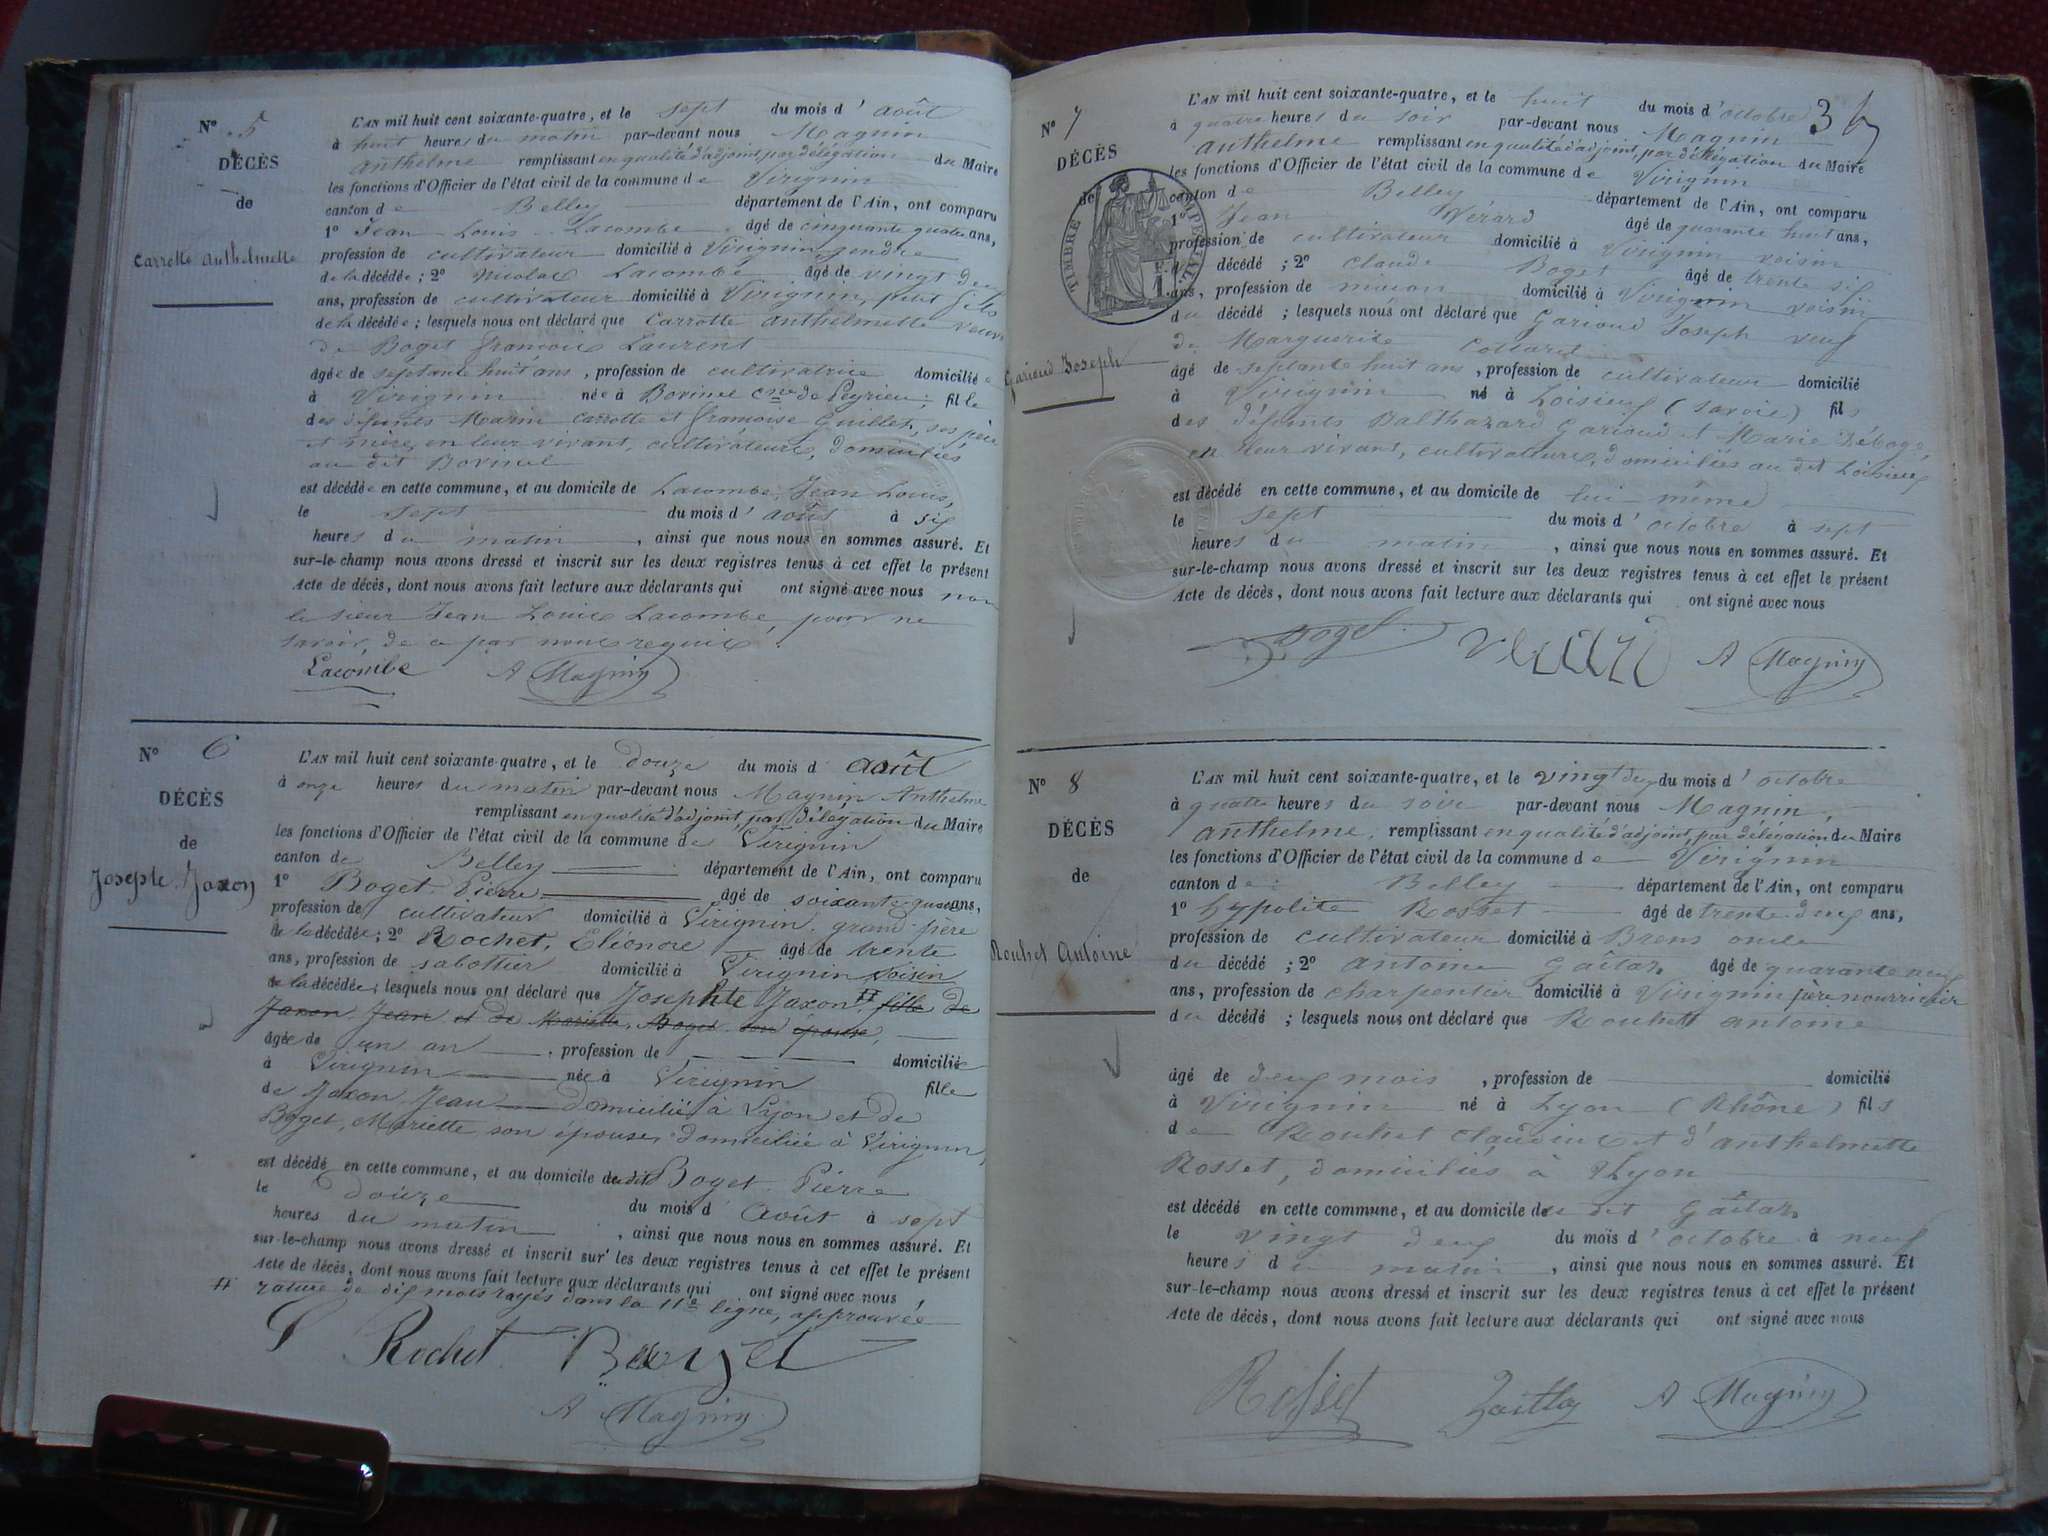 N° 5
DÉCÈS
de
Carrotte Anthelmette
L'AN mil huit cent soixante-quatre, et le sept du mois d'août
à huit heures du matin par-devant nous Magnin
Anthelme remplissant en qualité d'adjoint, par délégation du Maire
les fonctions d'Officier de l'état civil de la commune de Virignin
canton de Belley département de l'Ain, ont comparu
1° Jean Louis Lacombe âgé de cinquante quatre ans,
profession de cultivateur domicilié à Virignin, gendre
de la décédée ; 2° Nicolas Lacombe âgé de vingt deux
ans, profession de cultivateur domicilié à Virignin, petit fils
de la décédée ; lesquels nous ont déclaré que Carrotte Anthelmette veuve
de Boget François Laurent
âgée de septante huit ans, profession de cultivatrice domiciliée
à Virignin née à Borinel cne de Peyrieu, fille
des défunts Marin Carrotte et Françoise Guillet, ses père
et mère, en leur vivant, cultivateurs, domiciliés
au dit Borinel
est décédée en cette commune, et au domicile de Lacombe, Jean Louis,
le sept du mois d'août à six
heures du matin, ainsi que nous nous en sommes assuré. Et
sur-le-champ nous avons dressé et inscrit sur les deux registres tenus à cet effet le présent
Acte de décès, dont nous avons fait lecture aux déclarants qui ont signé avec nous non
le sieur Jean Louis Lacombe, pour ne
savoir, de ce par nous requis
Lacombe A Magnin
N° 6
DÉCÈS
de
Josephte Jaxon
L'AN mil huit cent soixante-quatre, et le douze du mois d'août
à onze heures du matin par-devant nous Magnin Anthelme
remplissant en qualité d'adjoint, par délégation du Maire
les fonctions d'Officier de l'état civil de la commune de Virignin
canton de Belley département de l'Ain, ont comparu
1° Boget Pierre âgé de soixante ans,
profession de cultivateur domicilié à Virignin, grand père
de la décédée ; 2° Rochet, Eléonore âgé de trente
ans, profession de sabottier domicilié à Virignin voisin
de la décédée ; lesquels nous ont déclaré que Josephte Jaxon # fille de
Jaxon, Jean et de Mariette, Boget son épouse,
âgée de un an, profession de domiciliée
à Virignin née à Virignin fille
de Jaxon, Jean domicilié à Lyon et de
Boget, Mariette, son épouse, domiciliée à Virignin,
est décédé en cette commune, et au domicile du dit Boget Pierre
le douze du mois d'août à sept
heures du matin, ainsi que nous nous en sommes assuré. Et
sur-le-champ nous avons dressé et inscrit sur les deux registres tenus à cet effet le présent
Acte de décès, dont nous avons fait lecture aux déclarants qui ont signé avec nous,
# rature de dix mots rayés dans la 11e ligne, approuvée
Rochet Boget
A Magnin
3
N° 7
DÉCÈS
de
TIMBRE IMPERIAL
Garioud Joseph
L'AN mil huit cent soixante-quatre, et le huit du mois d'octobre
à quatre heures du soir par-devant nous Magnin
Anthelme remplissant en qualité d'adjoint, par délégation du Maire
les fonctions d'Officier de l'état civil de la commune de Virignin
canton de Belley département de l'Ain, ont comparu
1° Jean Vérard âgé de quarante huit ans,
profession de cultivateur domicilié à Virignin voisin
décédé ; 2° Claude Boget âgé de trente six
ans, profession de maçon domicilié à Virignin voisin
du décédé ; lesquels nous ont déclaré que Garioud Joseph veuf
de Marguerite Collard
âgé de septante huit ans, profession de cultivateur domicilié
à Virignin né à Loisieux (Savoie) fils
des défunts Balthazard Garioud et Marie Déboge,
en leur vivant, cultivateurs, domiciliés au dit Loisieux
est décédé en cette commune, et au domicile de lui-même
le sept du mois d'octobre à sept
heures du matin, ainsi que nous nous en sommes assuré. Et
sur-le-champ nous avons dressé et inscrit sur les deux registres tenus à cet effet le présent
Acte de décès, dont nous avons fait lecture aux déclarants qui ont signé avec nous
Boget A Magnin
N° 8
DÉCÈS
de
Rouhet Antoine
L'AN mil huit cent soixante-quatre, et le vingt deux du mois d'octobre
à quatre heures du soir par-devant nous Magnin,
Anthelme, remplissant en qualité d'adjoint, par délégation du Maire
les fonctions d'Officier de l'état civil de la commune de Virignin
canton de Belley département de l'Ain, ont comparu
1° Hypolite Rosset âgé de trente-deux ans,
profession de cultivateur domicilié à Brens oncle
du décédé ; 2° Antoine Gaîtaz âgé de quarante neuf
ans, profession de charpentier domicilié à Virignin père nourricier
du décédé ; lesquels nous ont déclaré que Rouhet Antoine
âgé de deux mois, profession de domicilié
à Virignin né à Lyon (Rhône) fils
de Rouhet Claudius et d'Anthelmette
Rosset, domiciliés à Lyon
est décédé en cette commune, et au domicile de dit Gaîtaz
le vingt deux du mois d'octobre à neuf
heures du matin, ainsi que nous nous en sommes assuré. Et
sur-le-champ nous avons dressé et inscrit sur les deux registres tenus à cet effet le présent
Acte de décès, dont nous avons fait lecture aux déclarants qui ont signé avec nous
Rosset A Magnin